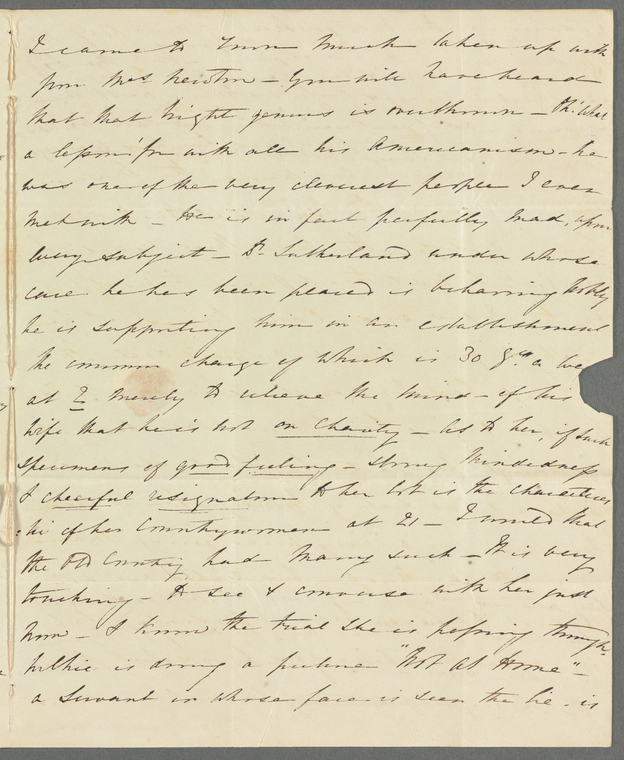 I came to Town much taken up with
poor Mrs. Newton – You will have heard
that that bright genius is overthrown – Oh! What
a lesson! for with all his Americanism – he
was one of the very cleverest people I ever
met with – He is in fact perfectly mad, upon
every subject – Dr. Sutherland under whose
care he has been placed is behaving Nobly
he is supporting him in an establishment
the common charge of which is 30 Gs. a
at 2 merely to relieve the mind – of his
Wife that he is not on Charity – As to her, if such
specimens of good feeling – strong Mindedness
& cheerful resignation to her lot is the characteris
:tic of her Countrywomen at 21 – I would that
the Old Country had Many such – It is very
touching – to see & converse with her just
now – I know the trial She is passing through.
is doing a picture "Not at Home" –
a Servant in whose face is seen the lie – is